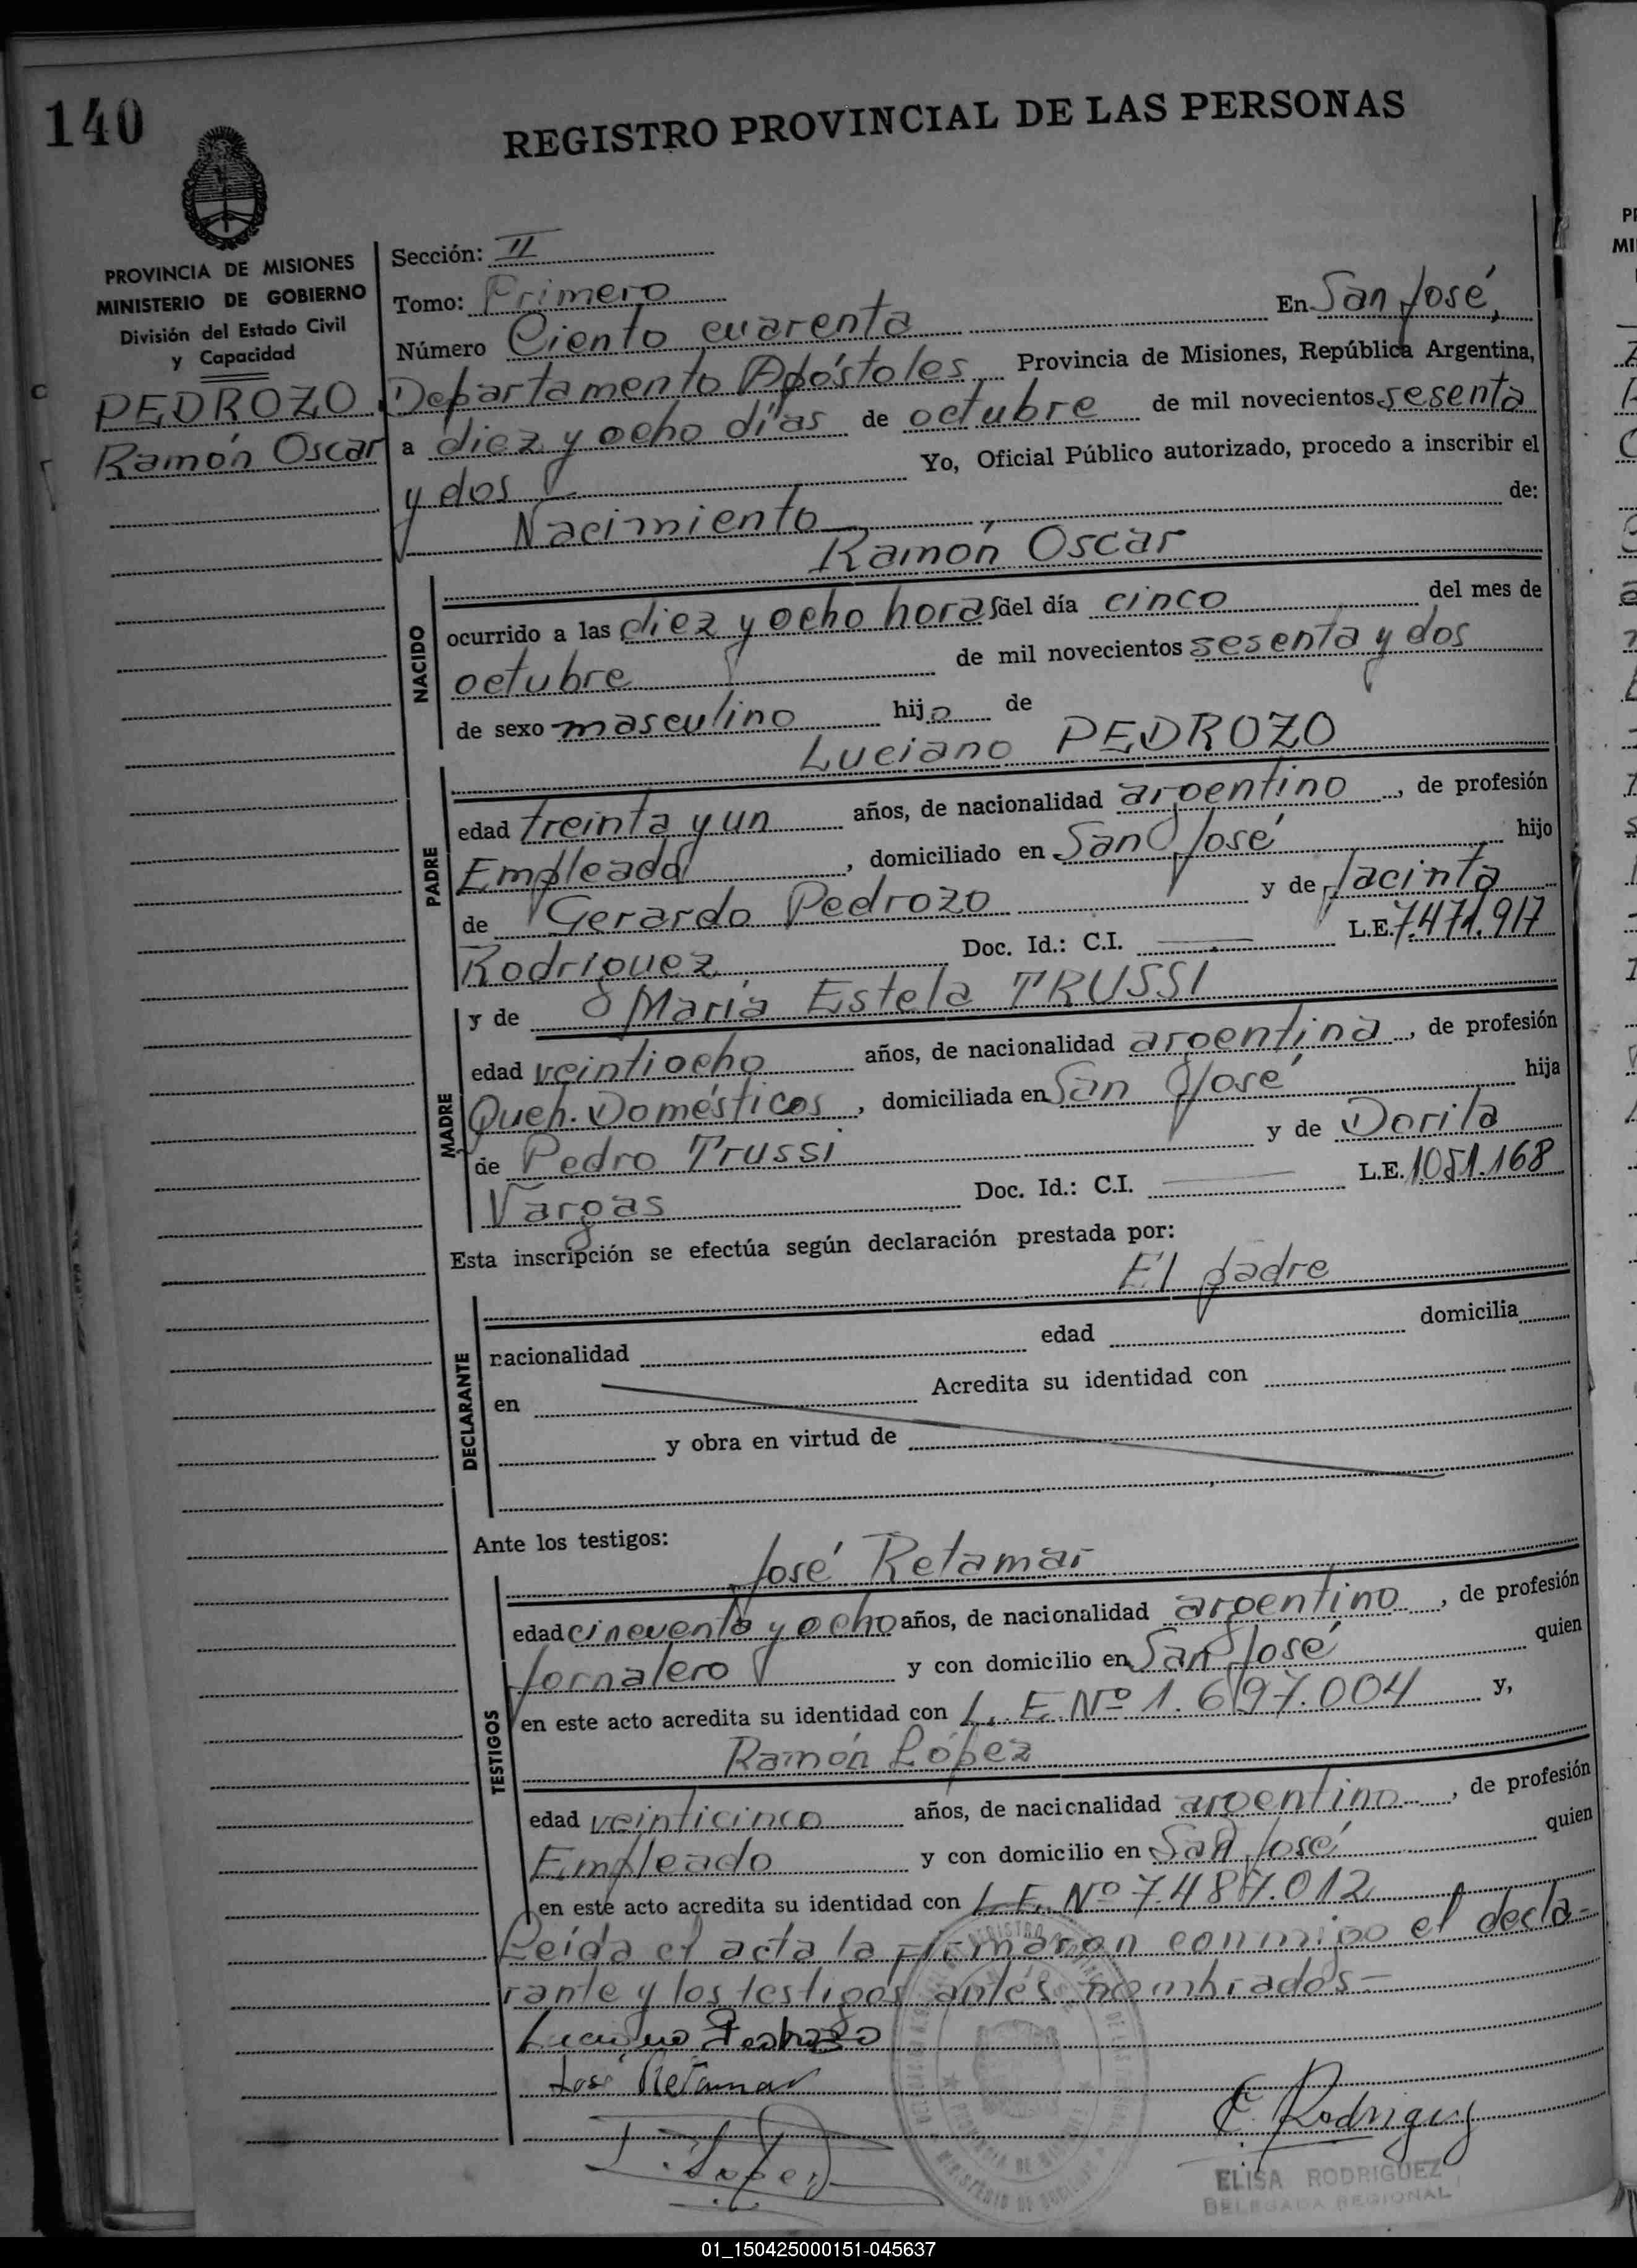 140
REGISTRO PROVINCIAL DE LAS PERSONAS
PROVINCIA DE MISIONES
MINISTERIO DE GOBIERNO
División del Estado Civil
y Capacidad
PEDROZO
Ramón Oscar
Sección: II
Tomo: Primero
Número Ciento cuarenta En San José,
Departamento Apóstoles, Provincia de Misiones, República Argentina,
a diez y ocho días de octubre de mil novecientos sesenta
y dos Yo, Oficial Público autorizado, procedo a inscribir el
Nacimiento de:
Ramón Oscar
NACIDO
ocurrido a las diez y ocho horas del día cinco del mes de
octubre de mil novecientos sesenta y dos
de sexo masculino hijo de
Luciano PEDROZO
PADRE
edad treinta y un años, de nacionalidad argentino, de profesión
Empleado, domiciliado en San José hijo
de Gerardo Pedrozo y de Jacinta
Rodriguez Doc. Id.: C.I. L.E. 7.471.917
y de María Estela TRUSSI
MADRE
edad veintiocho años, de nacionalidad argentina, de profesión
Queh. Domésticos, domiciliada en San José hija
de Pedro Trussi y de Dorila
Vargas Doc. Id.: C.I. L.E. 1.051.168
Esta inscripción se efectúa según declaración prestada por:
El padre
DECLARANTE
nacionalidad edad domicilia
en Acredita su identidad con
y obra en virtud de
Ante los testigos:
José Retamar
TESTIGOS
edad cincuenta y ocho años, de nacionalidad argentino, de profesión
Jornalero y con domicilio en San José quien
en este acto acredita su identidad con L.E. Nº 1.697.004 y,
Ramón López
edad veinticinco años, de nacionalidad argentino, de profesión
Empleado y con domicilio en San José quien
en este acto acredita su identidad con L.E. Nº 7.487.012
Leída el acta la firmaron conmigo el decla-
rante y los testigos antes nombrados-
Luciano Pedrozo
José Retamar
R. López
E. Rodriguez
ELISA RODRIGUEZ
DELEGADA REGIONAL
01_150425000151-045637